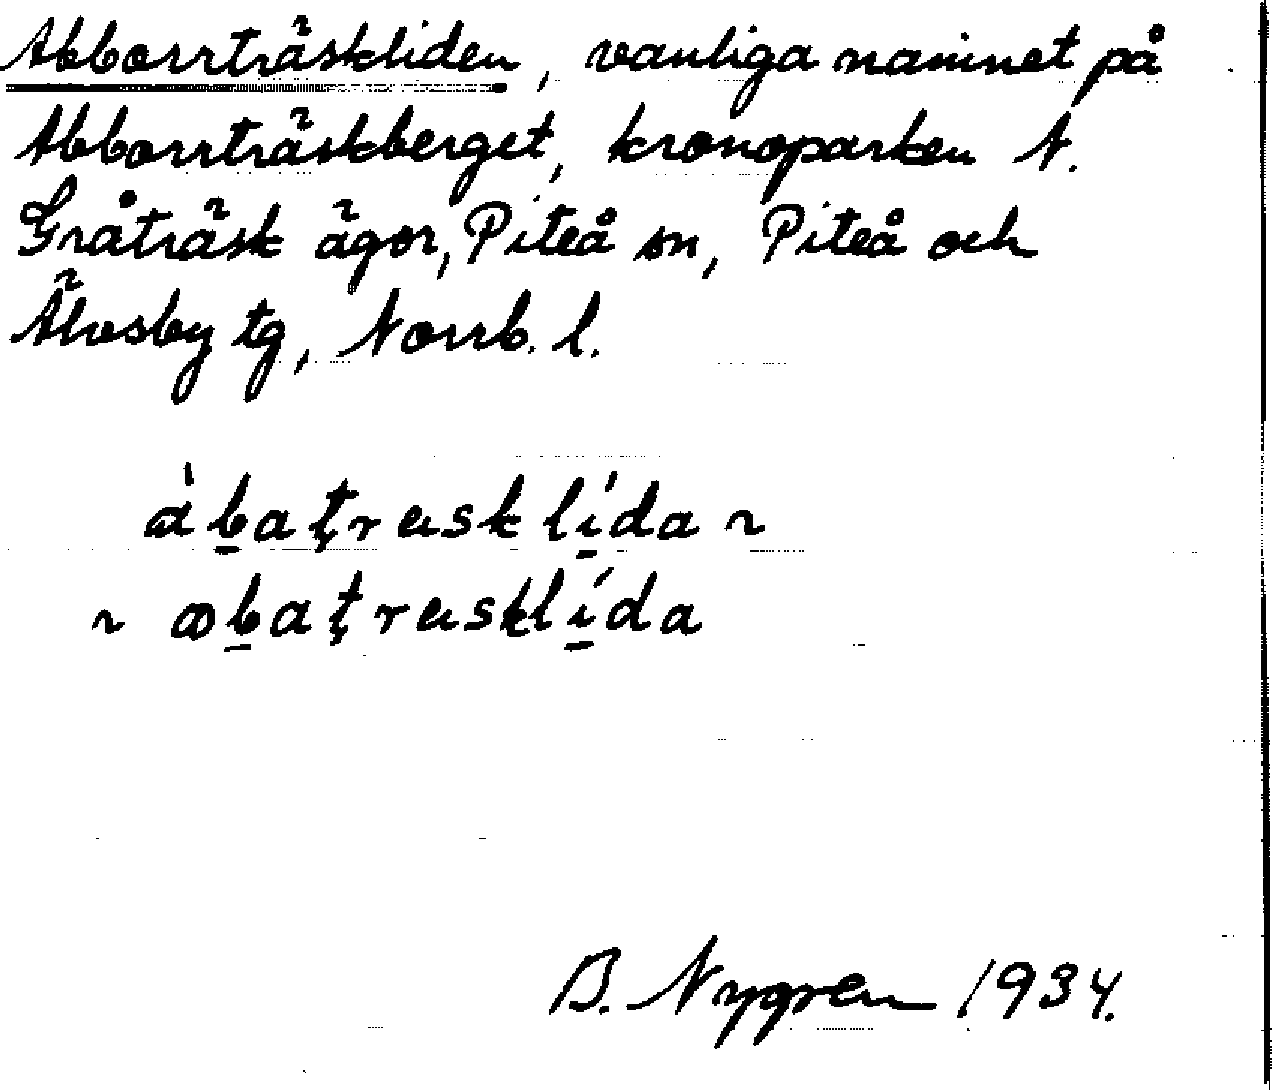 Abborrträskliden, vanliga namnet på
Abborrträskberget, kronoparken N.
Gråträsk ägor, Piteå sn, Piteå och
Älvsby tg, Norrb. l.
àb̠aţrask lí̠da ~
~ ab̠aţrasklí̠da
B. Nygren 1934.